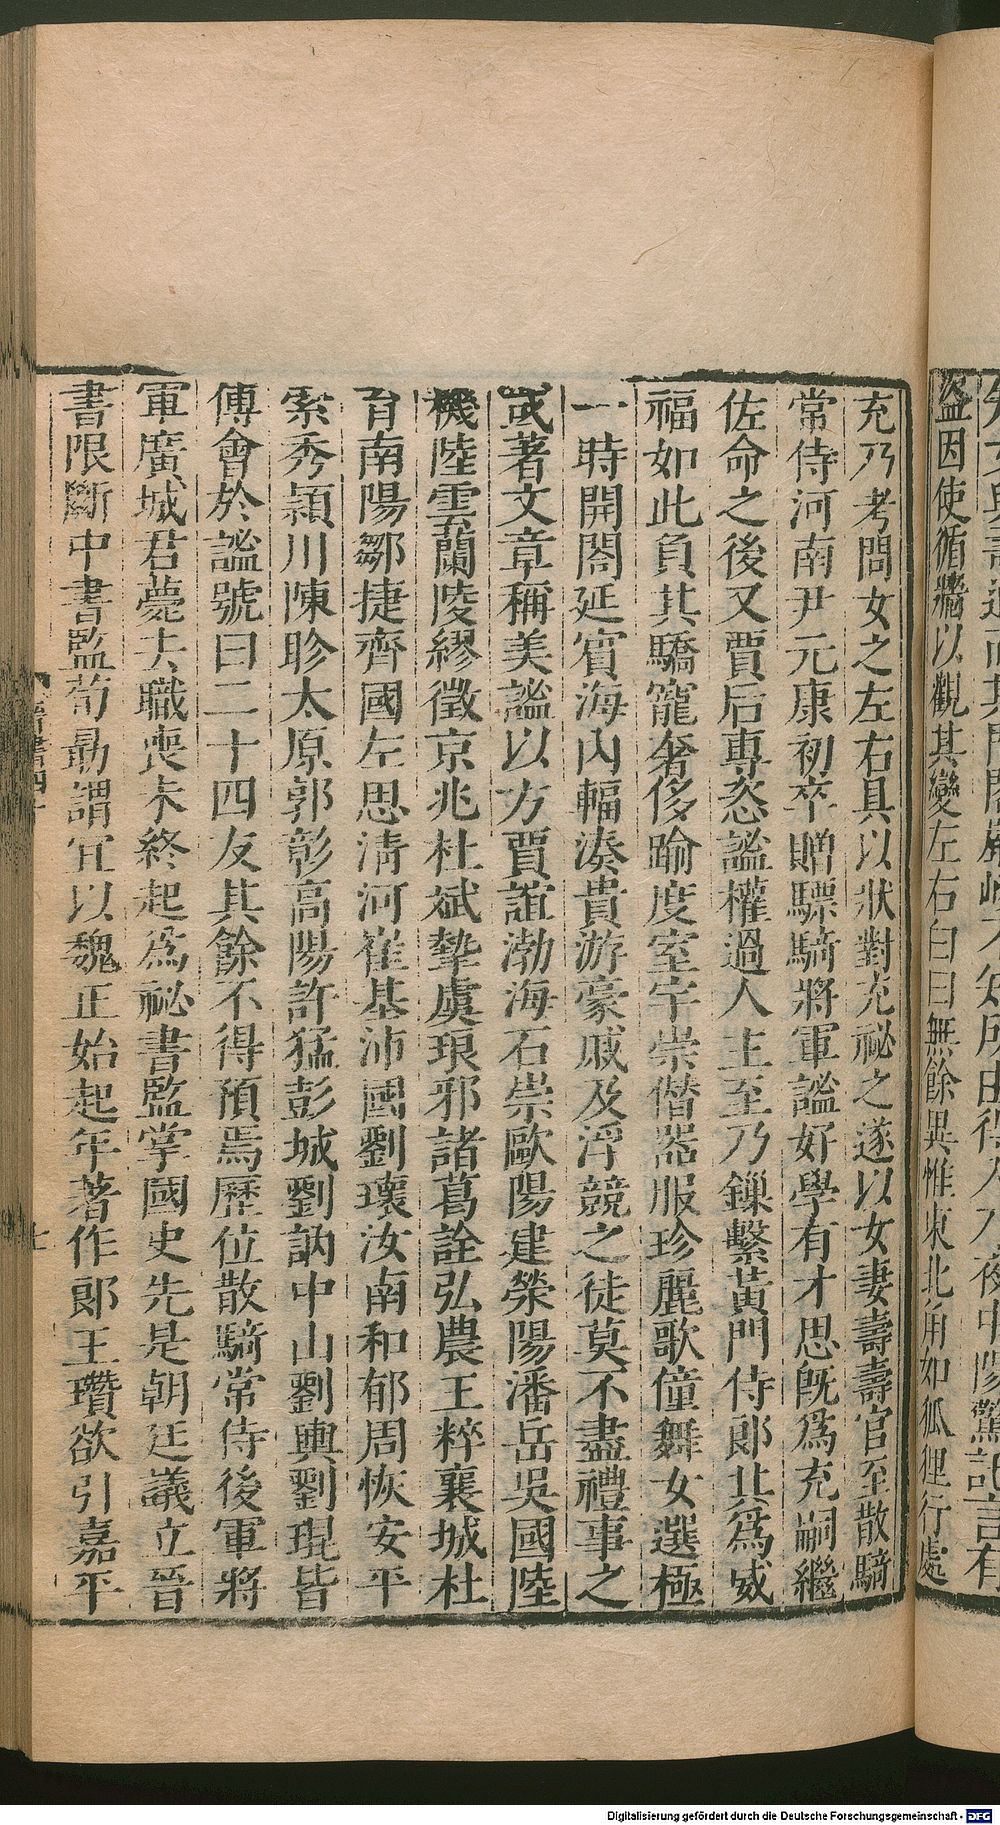 盜因使循牆以觀其變左右白曰無餘異惟東北角如狐狸行處
充乃考問女之左右具以狀對充祕之遂以女妻壽壽官至散騎
常侍河南尹元康初卒贈驃騎將軍謐好學有才思旣爲充嗣繼
佐命之後又賈后專恣謐權過人主至乃鏁繫黃門侍郎其爲威
福如此負其驕寵奢侈踰度室宇崇僭器服珍麗歌僮舞女選極
一時開閤延賓海內輻湊貴游豪戚及浮競之徒莫不盡禮事之
或著文章稱美謐以方賈誼渤海石崇歐陽建滎陽潘岳吳國陸
機陸雲蘭陵繆徵京兆杜斌摯虞琅邪諸葛詮弘農王粹襄城杜
育南陽鄒捷齊國左思清河崔基沛國劉瓌汝南和郁周恢安平
索秀潁川陳眕太原郭彰高陽許猛彭城劉訥中山劉輿劉琨皆
傅會於謐號曰二十四友其餘不得預焉歷位散騎常侍後軍將
軍廣城君薨去職喪未終起爲祕書監掌國史先是朝廷議立晉
書限斷中書監荀勖謂宜以魏正始起年著作郎王瓚欲引嘉平
Digitalisierung gefördert durch die Deutsche Forschungsgemeinschaft - DFG